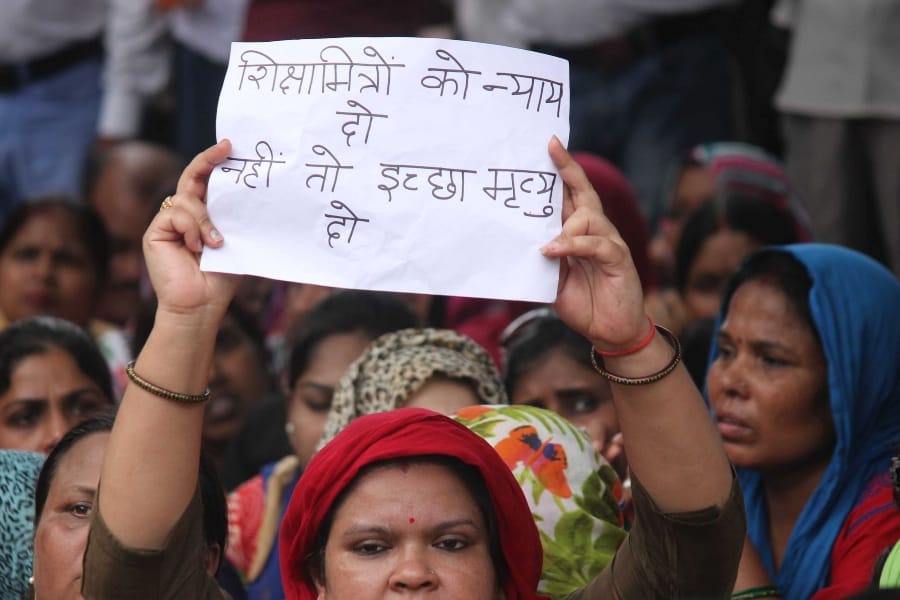 शिक्षामित्रों को न्याय
दो
नहीं तो इच्छा मृत्यु
दो